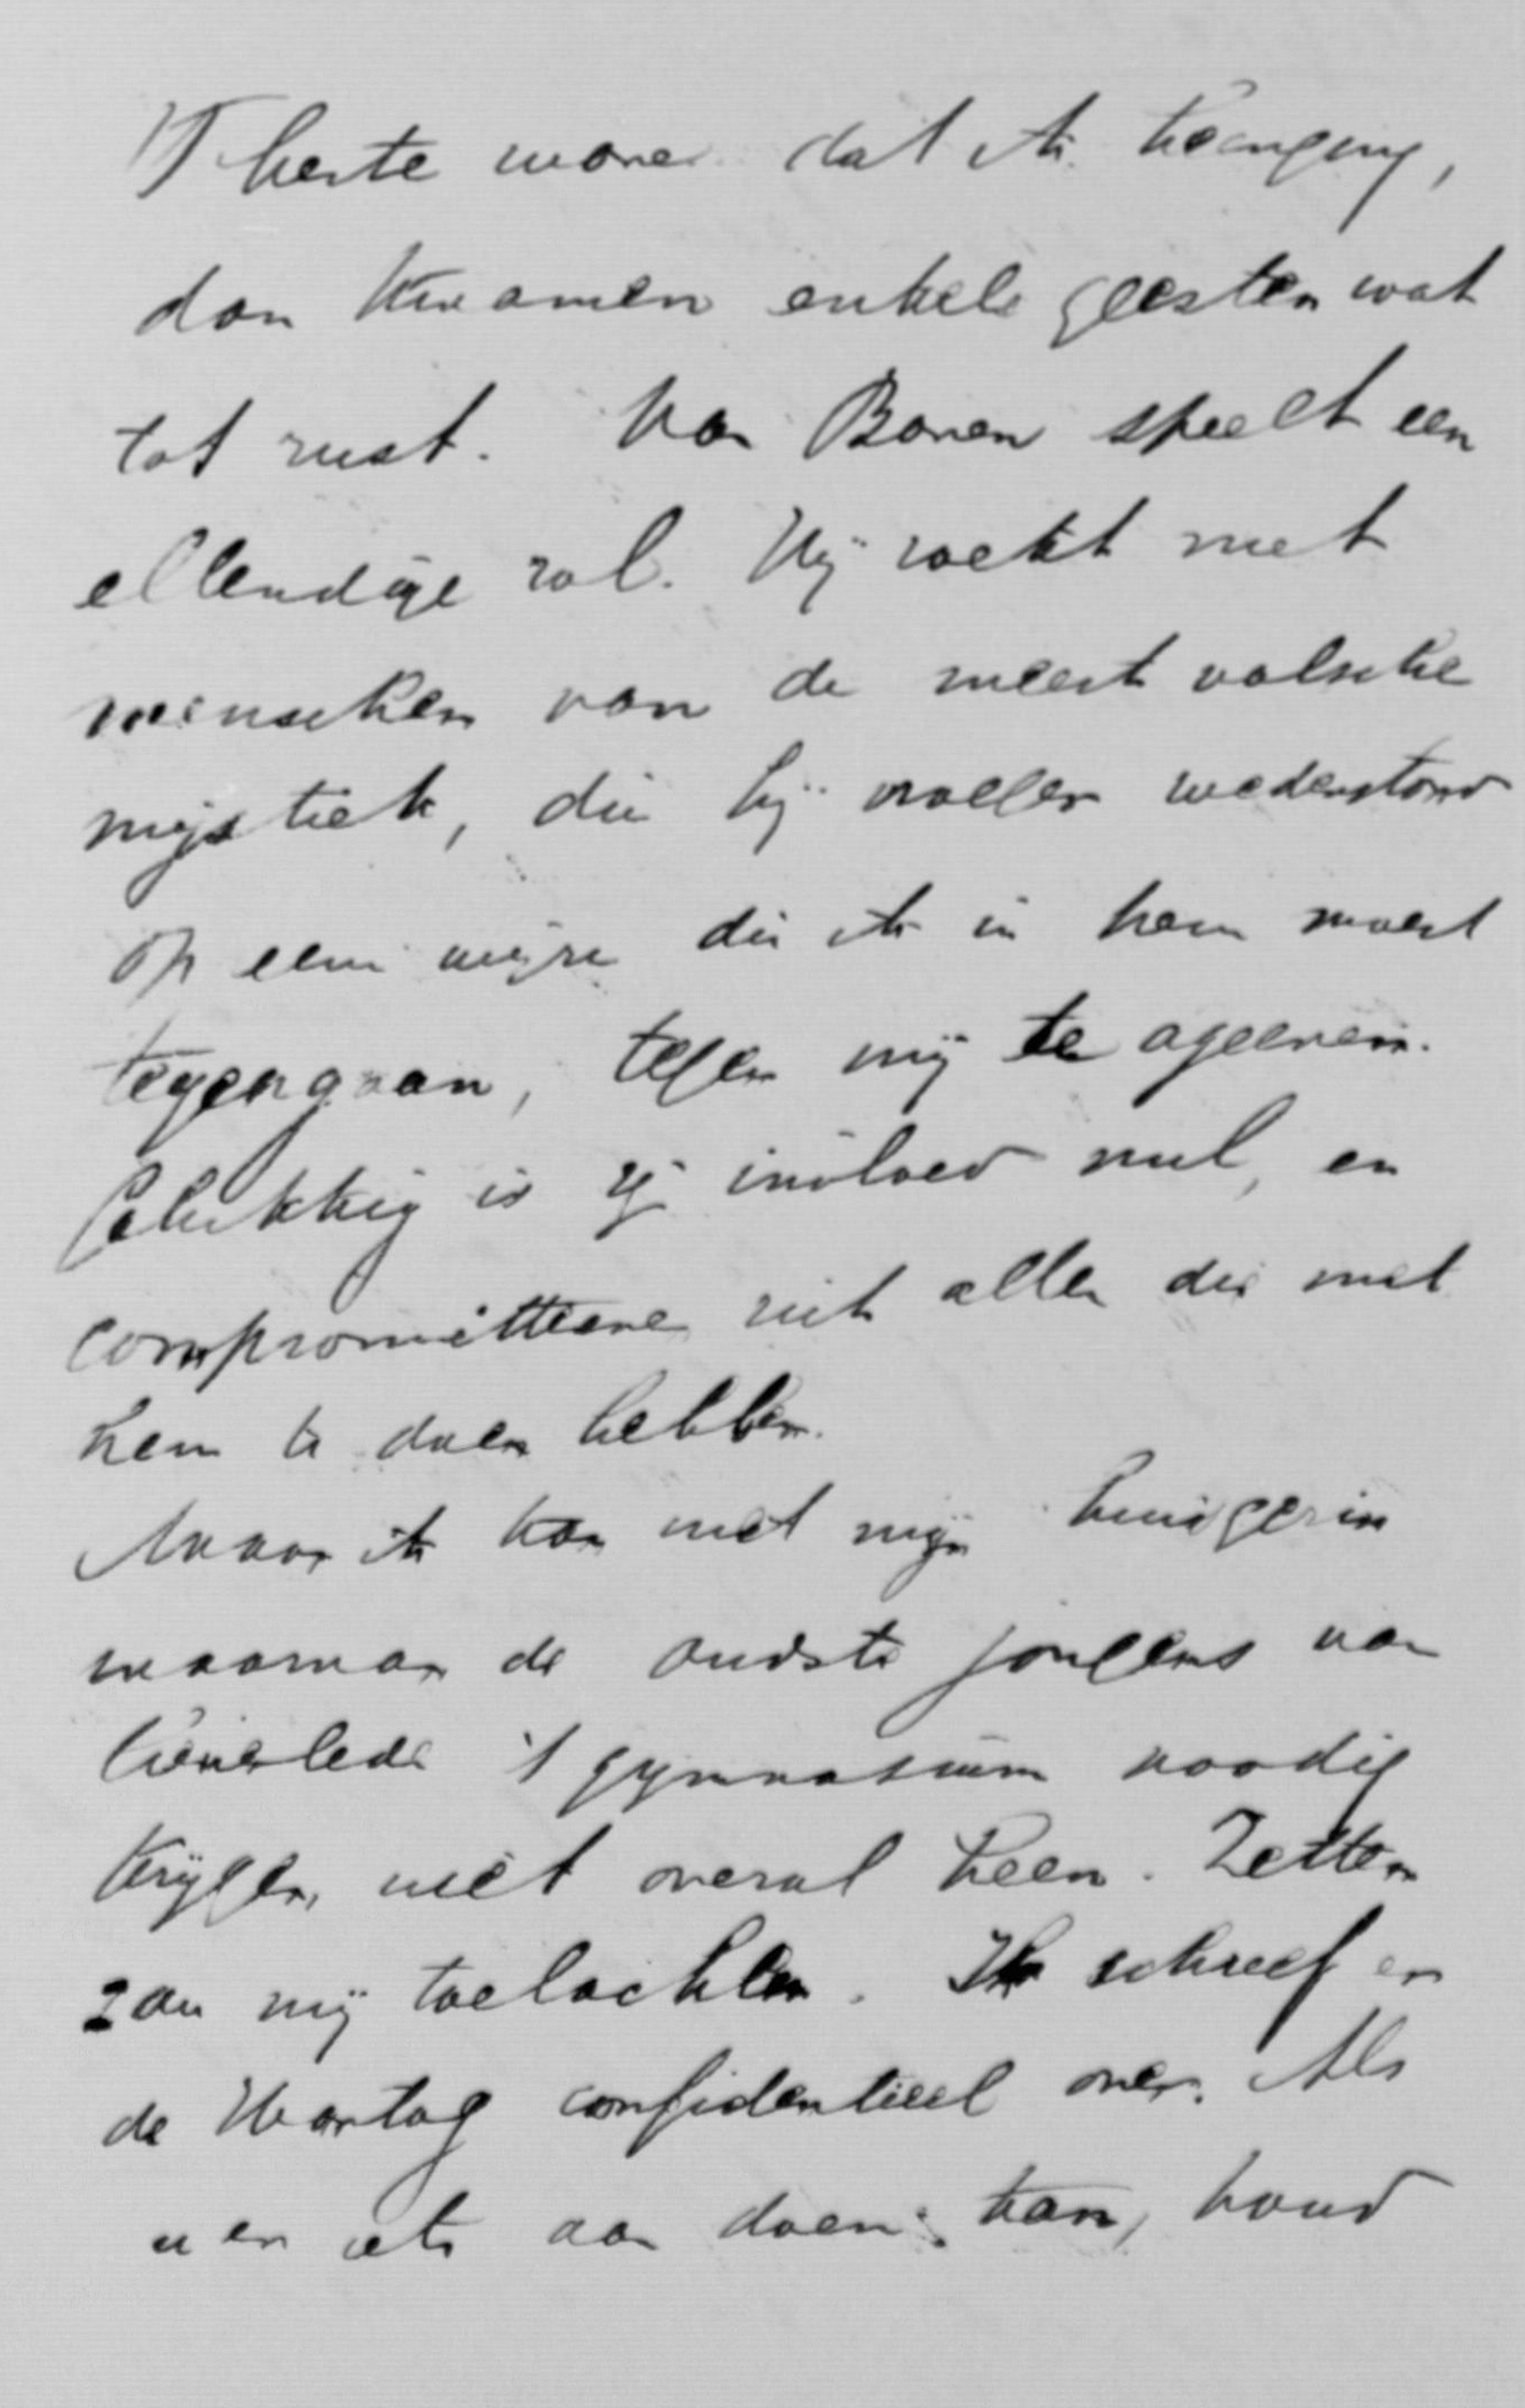 'T beste ware dat ik heenging,
dan kwamen enkele geesten wat
tot rust. Van Baren speelt een
ellendige rol. Hij zoekt met
menschen van de meest valsche
mystiek, die hij wedenstond
op een wijze die ik in hem moest
tegengaan, tegen mij te ageeren.
Gelukkig is zij invloed nul, en
compromitteere zich allen die met
hem te doen hebben.
Maar ik kan met mijn huisgezin
waarvan de oudste jongens van
lieverlede 't gymnasium noodig
krijgen niet overal heen. Zetten
zou mij toelachen. Ik schreef er
de Hartog confidentieel over. Als
u er iets aan doen kan, houd